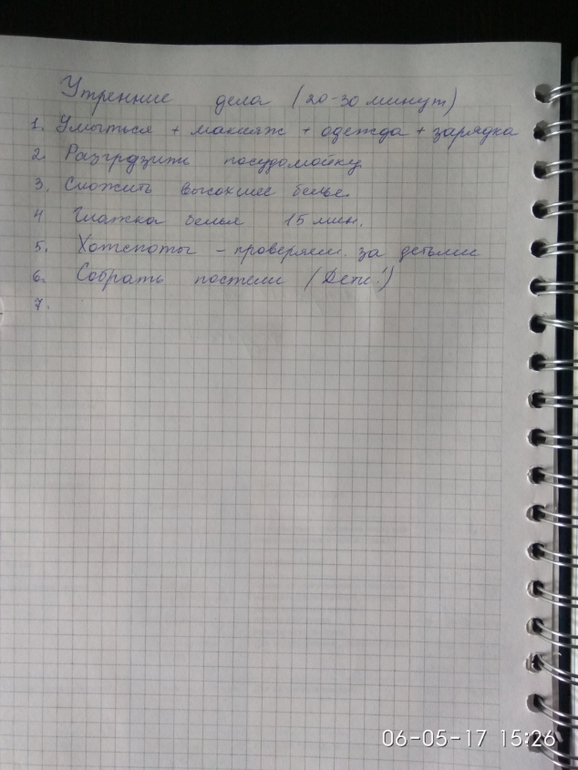 Утренние дела (20-30 минут)
1. Умыться + макияж + одежда + зарядка
2. Разгрузить посудомойку
3. Сложить высохшее белье
4. Глажка белья 15 мин.
5. Хотспоты - проверяем за детьми
6. Собрать постели (Дети!)
7.
06-05-17 15:26